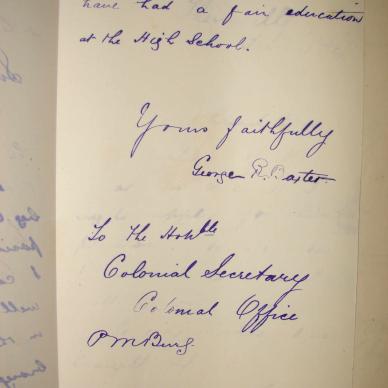 have had a fair education
at the High School.
Yours faithfully
George R. Baxter.
To the Honble
Colonial Secretary
Colonial Office
P M Burg